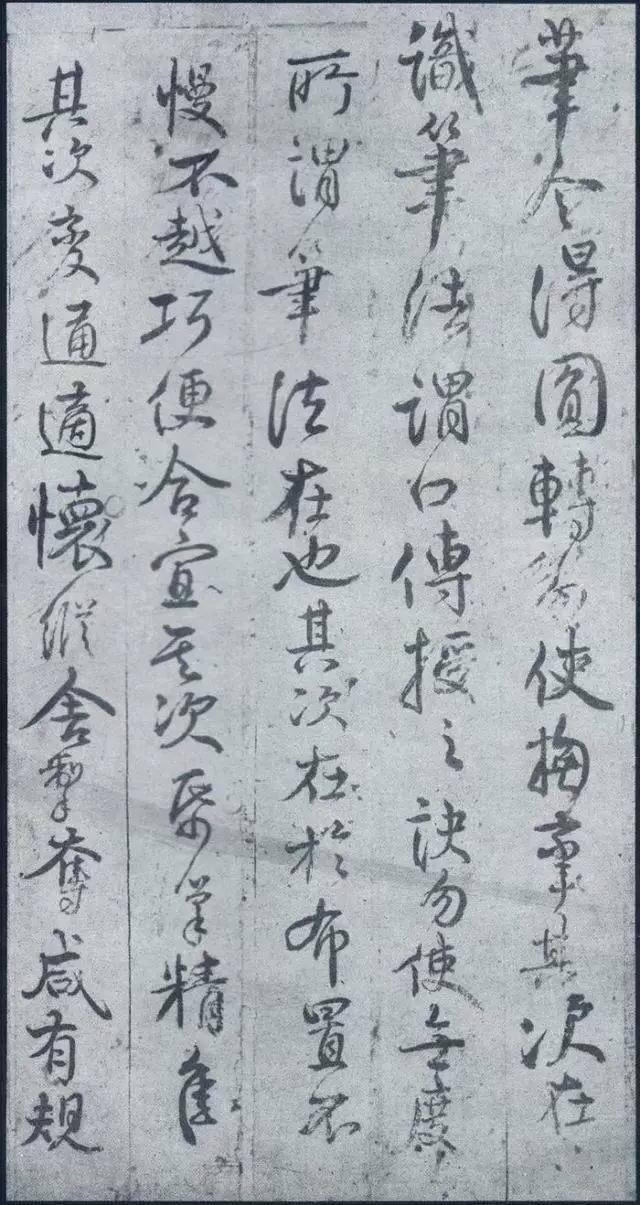 筆令得圓轉勿使拘攣其次在
識筆法謂口傳授之訣勿使無度
所謂筆法在也其次在於布置不
慢不越巧便合宜其次紙筆精佳
其次變通適懷縱舍掣奪咸有規